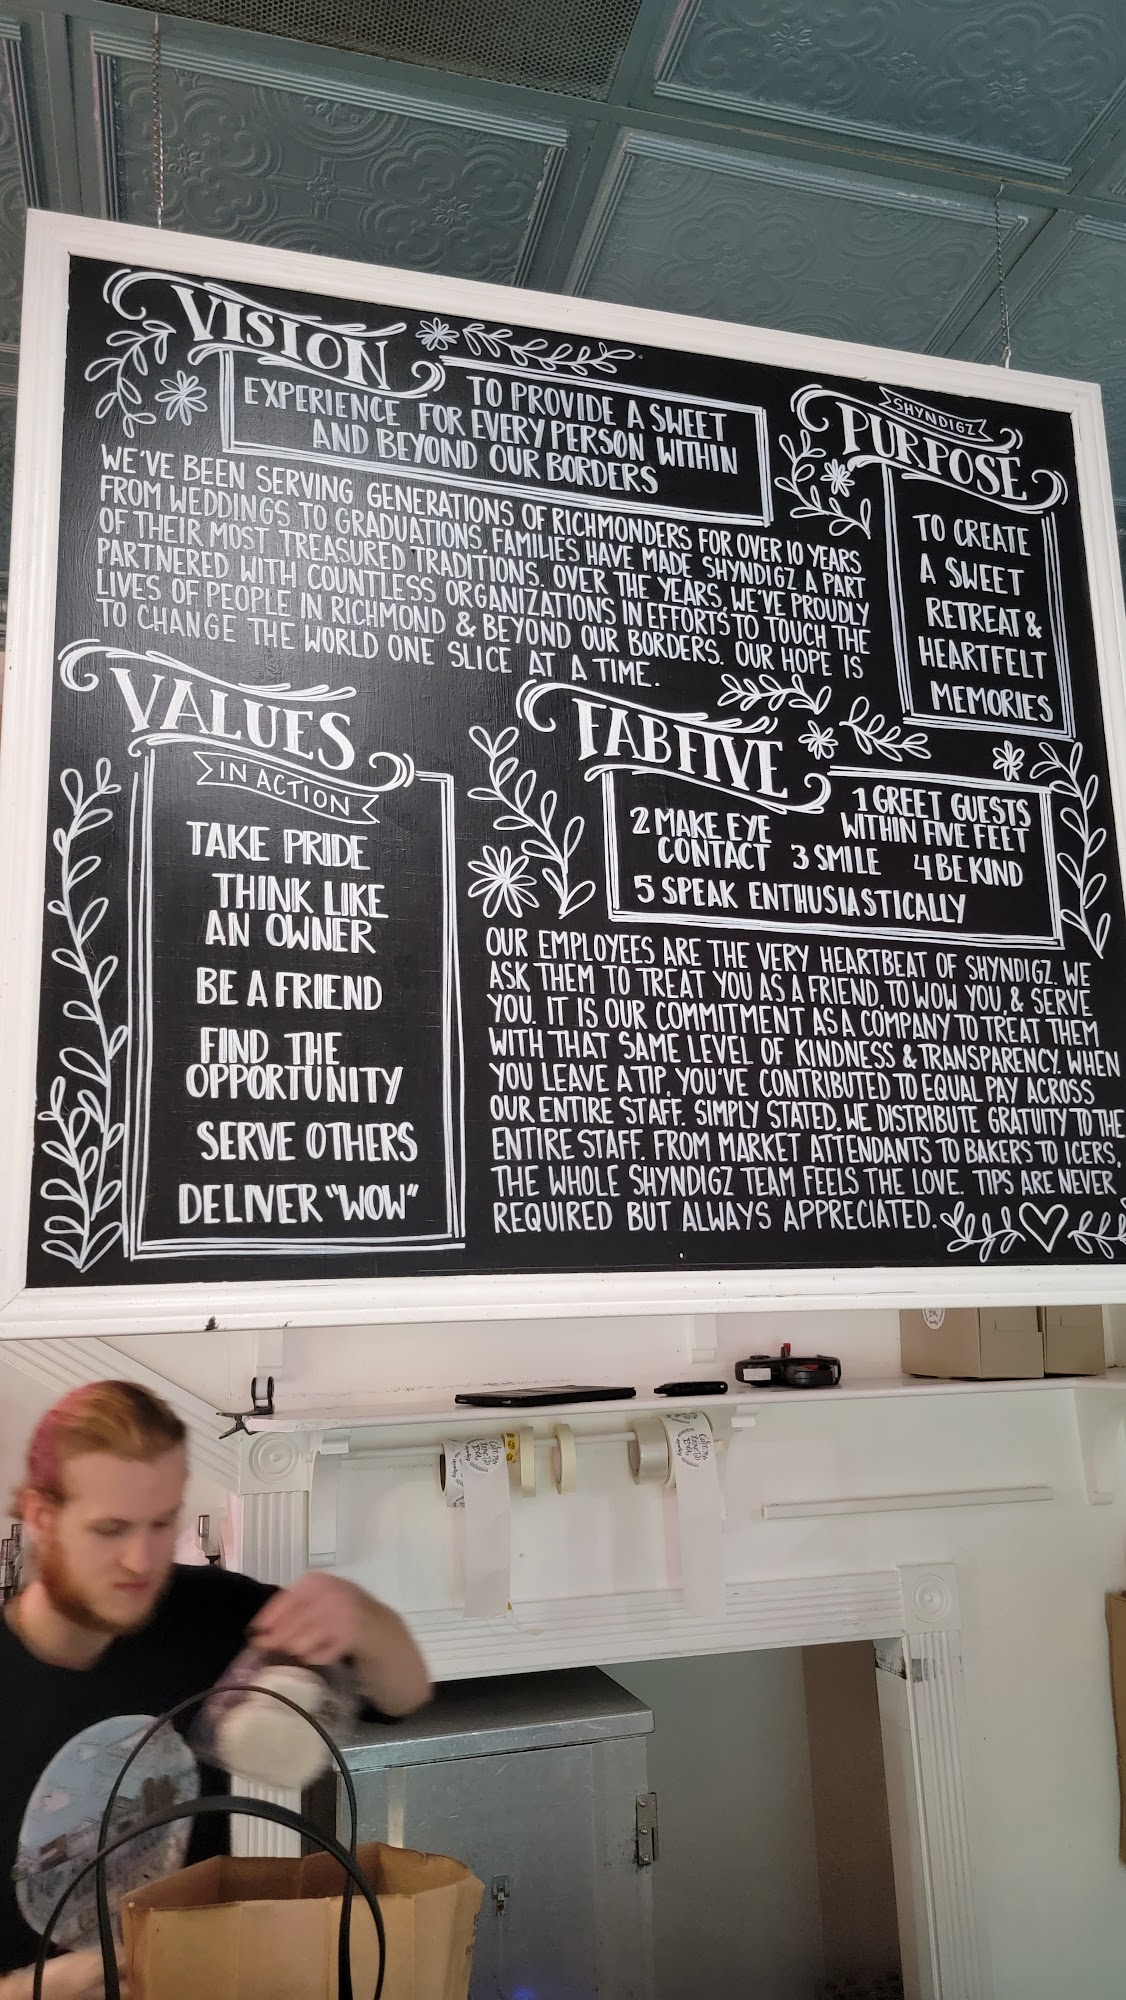 VISION
TO PROVIDE A SWEET
EXPERIENCE FOR EVERY PERSON WITHIN
AND BEYOND OUR BORDERS
WE'VE BEEN SERVING GENERATIONS OF RICHMONDERS FOR OVER 10 YEARS
FROM WEDDINGS TO GRADUATIONS, FAMILIES HAVE MADE SHYNDIGZ A PART
OF THEIR MOST TREASURED TRADITIONS. OVER THE YEARS, WE'VE PROUDLY
PARTNERED WITH COUNTLESS ORGANIZATIONS IN EFFORTS TO TOUCH THE
LIVES OF PEOPLE IN RICHMOND & BEYOND OUR BORDERS. OUR HOPE IS
TO CHANGE THE WORLD ONE SLICE AT A TIME.
SHYNDIGZ
PURPOSE
TO CREATE
A SWEET
RETREAT &
HEARTFELT
MEMORIES
VALUES
IN ACTION
TAKE PRIDE
THINK LIKE
AN OWNER
BE A FRIEND
FIND THE
OPPORTUNITY
SERVE OTHERS
DELIVER "WOW"
FAB FIVE
1 GREET GUESTS
WITHIN FIVE FEET
2 MAKE EYE
CONTACT 3 SMILE 4 BE KIND
5 SPEAK ENTHUSIASTICALLY
OUR EMPLOYEES ARE THE VERY HEARTBEAT OF SHYNDIGZ. WE
ASK THEM TO TREAT YOU AS A FRIEND, TO WOW YOU, & SERVE
YOU. IT IS OUR COMMITMENT AS A COMPANY TO TREAT THEM
WITH THAT SAME LEVEL OF KINDNESS & TRANSPARENCY. WHEN
YOU LEAVE A TIP, YOU'VE CONTRIBUTED TO EQUAL PAY ACROSS
OUR ENTIRE STAFF. SIMPLY STATED, WE DISTRIBUTE GRATUITY TO THE
ENTIRE STAFF. FROM MARKET ATTENDANTS TO BAKERS TO ICERS,
THE WHOLE SHYNDIGZ TEAM FEELS THE LOVE. TIPS ARE NEVER
REQUIRED BUT ALWAYS APPRECIATED.